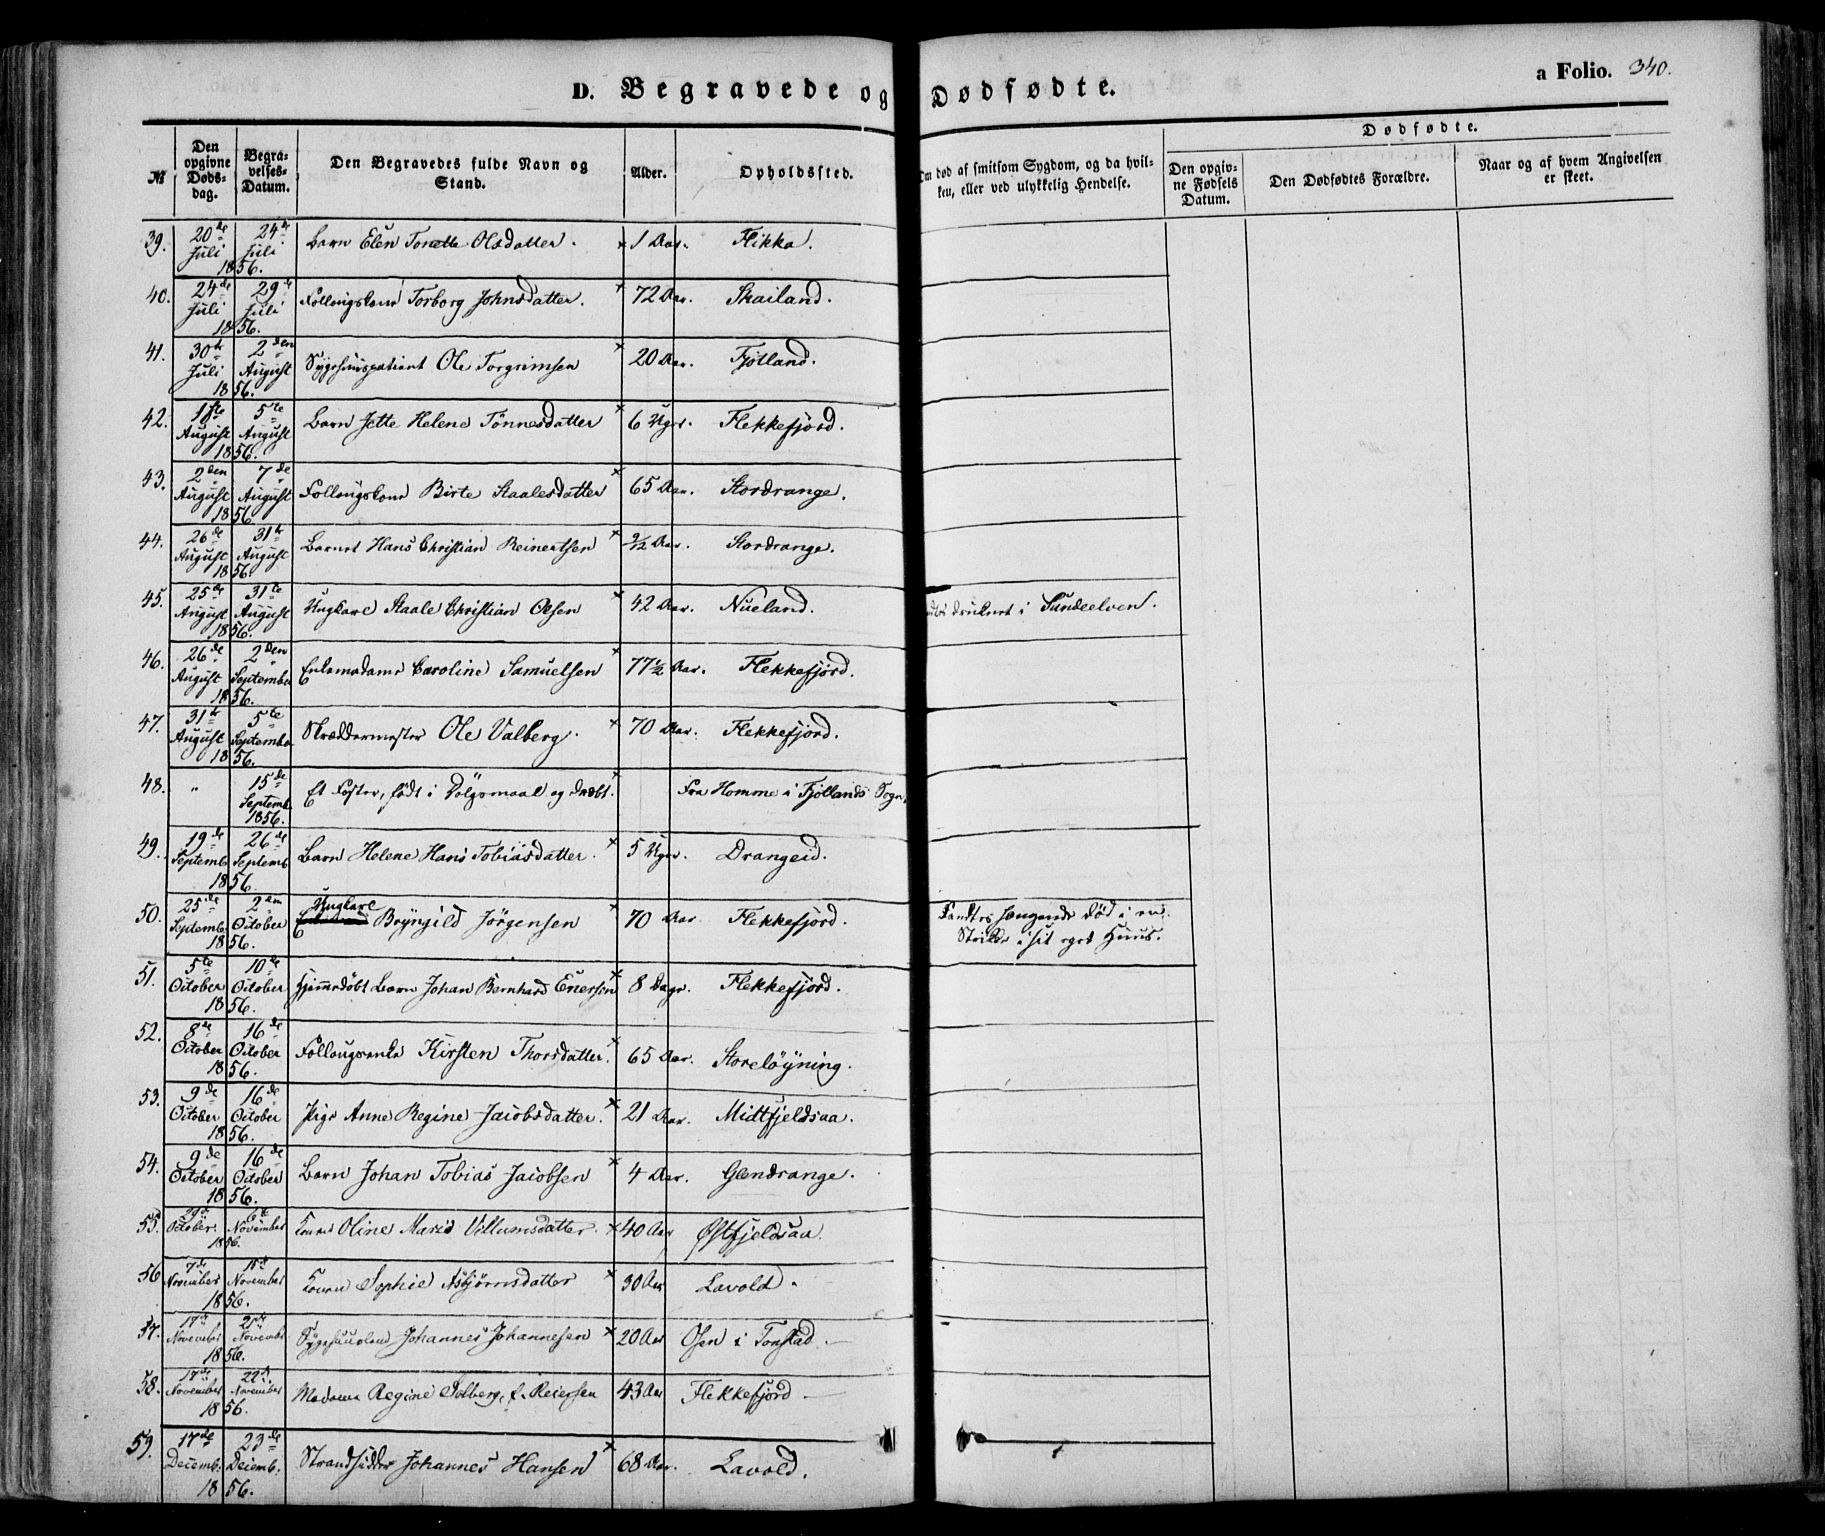 a Folio. 340.
D. Begravede og Dødfødte.
№
Den opgivne Dødsdag.
Begravelses-Datum.
Den Begravedes fulde Navn og Stand.
Alder.
Opholdssted.
Om død af smitsom Sygdom, og da hvilken, eller ved ulykkelig Hendelse.
Dødfødte.
Den opgivne Fødsels Datum.
Den Dødfødtes Forældre.
Naar og af hvem Angivelsen er skeet.
39. 20de Juli 24de Juli 1856. Barn Elen Tonette Olsdatter. × 1 Aar. Flikka.
40. 24de Juli 29de Juli 1856. Follougskone Torborg Johnsdatter. × 72 Aar. Skailand.
41. 30te Juli 2den August 1856. Sygehuuspatient Ole Torgrimsen × 20 Aar. Fjotland.
42. 1ste August 5te August 1856. Barn Jette Helene Tönnesdatter × 6 Uger. Flekkefjord.
43. 2den August 7de August 1856. Follougskone Birte Staalesdatter × 65 Aar. Stordrange.
44. 26de August 31te August 1856. Barnet Hans Christian Reinertsen × ½ Aar. Stordrange.
45. 25de August 31te August 1856. Ungkarl Staale Christian Olsen × 42 Aar. Nueland. druknet i Sundeelven.
46. 26de August 2den September 1856. Enkemadame Caroline Samuelsen × 77½ Aar. Flekkefjord.
47. 31te August 5te September 1856. Skræddermester Ole Valberg. × 70 Aar. Flekkefjord.
48. " 15de Septemb. 1856. Et Foster, født i Dölgsmaal og dræbt. × Fra Homme i Fjotlands Sogn.
49. 19de Septemb. 26de Septemb. 1856. Barn Helene Hans Tobiasdatter. × 5 Uger. Drangeid.
50. 25de Septemb. 2den October 1856. Ungkarl Bryngild Jörgensen × 70 Aar. Flekkefjord. Fandtes hængende död i en
Strikke i sit eget Huus.
51. 5te October 10de October 1856. Hjemmedöbt Barn Johan Bernhard Enersen × 8 Dage. Flekkefjord.
52. 8de October 16de October 1856. Follougsenke Kirsten Thorsdatter. × 65 Aar. Storelöyning.
53. 9de October 16de October 1856. Pige Anne Regine Jacobsdatter. × 21 Aar. Midtfjeldsaa.
54. 9de October 16de October 1856. Barn Johan Tobias Jacobsen × 4 Aar. Glendrange.
55. 29de October 6te November 1856. Konen Oline Marie Villumsdatter. × 40 Aar Østfjeldsaa.
56 7de November 15de November 1856. Konen Sophie Asbjørnsdatter × 30 Aar Lavold.
57. 17de November 21de Novemb. 1856. Johannes Johannesen × 20 Aar Osen i Tonstad
58. 17de November 22de November 1856. Madame Regine Solberg, f. Reiersen 43 Aar Flekkefjord
59. 17de Decemb. 23de Decemb. 1856. Strandsidder Johannes Hansen × 68 Aar. Lavold.